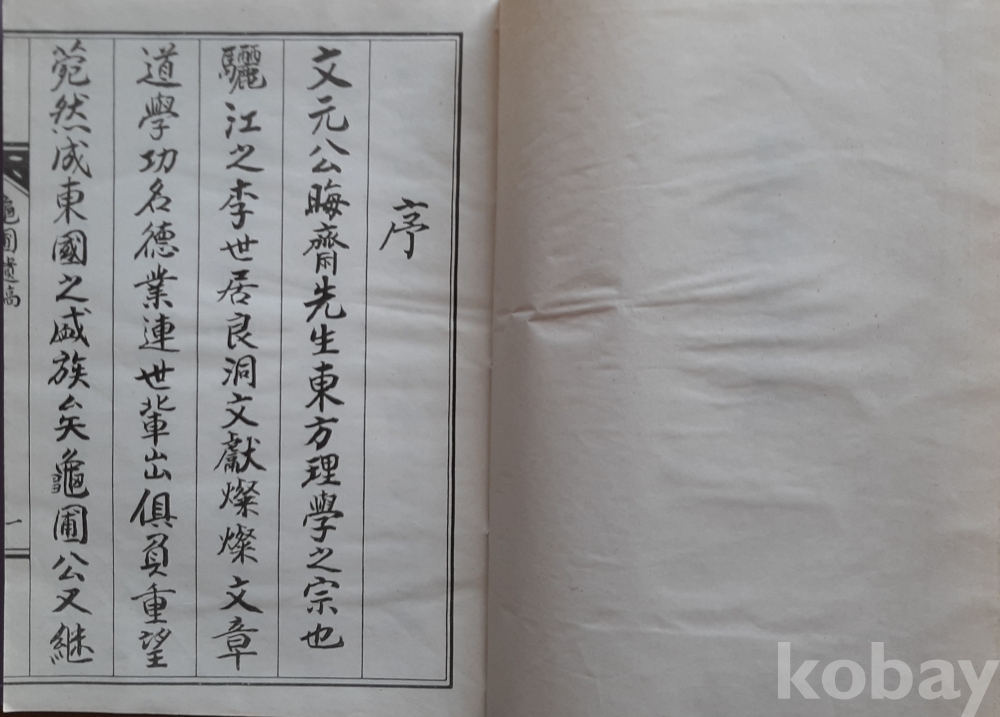 序
文元公晦齋先生東方理學之宗也
驪江之李世居良洞文獻燦燦文章
道學功名德業連世輩出俱負重望
菀然成東國之盛族矣龜圃公又継
龜圃遺稿
一
kobay